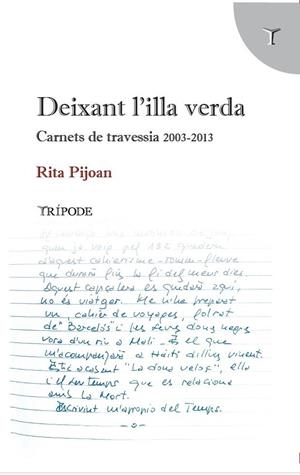 Deixant l'illa verda
Carnets de travessia 2003-2013
Rita Pijoan
TRÍPODE
que ja vaig pel 182 quadern
d'aquest cahierisme-roman-fleuve
que durarà fins la fi del meus dies.
Aquest capçalera es quedarà aquí,
no és viatger. Me n'he preparat
un, cahier de voyages, folrat
de "Barceló" i les seves dones negres
vora d'un riu a Mali. És el que
m'acompanyarà a Haití dilluns vinent.
Estic acabant "La dona veloç", ella
i l'
que es relaciona
amb la Mort.
Escrivint m'apropio del Temps.